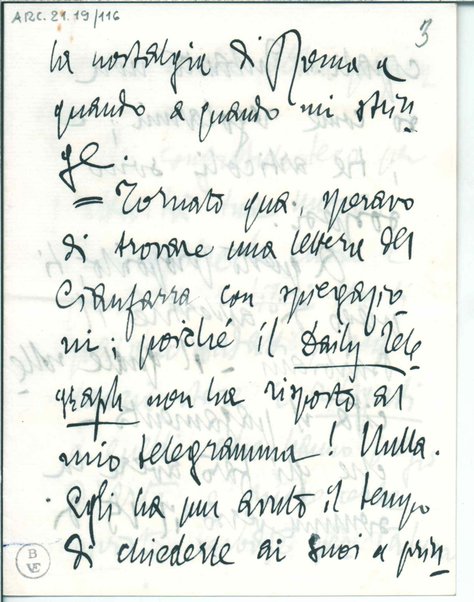 ARC. 21.19/116
3
la nostalgia di Roma a
quando a quando mi strin
ge.
= Tornato qua, speravo
di trovare una lettera del
Cianfarra con spiegazio
ni; poiché il Daily Tele
graph non ha risposto al
mio telegramma! Nulla.
Egli ha pur avuto il tempo
di chiederle ai suoi a prin
B
VE